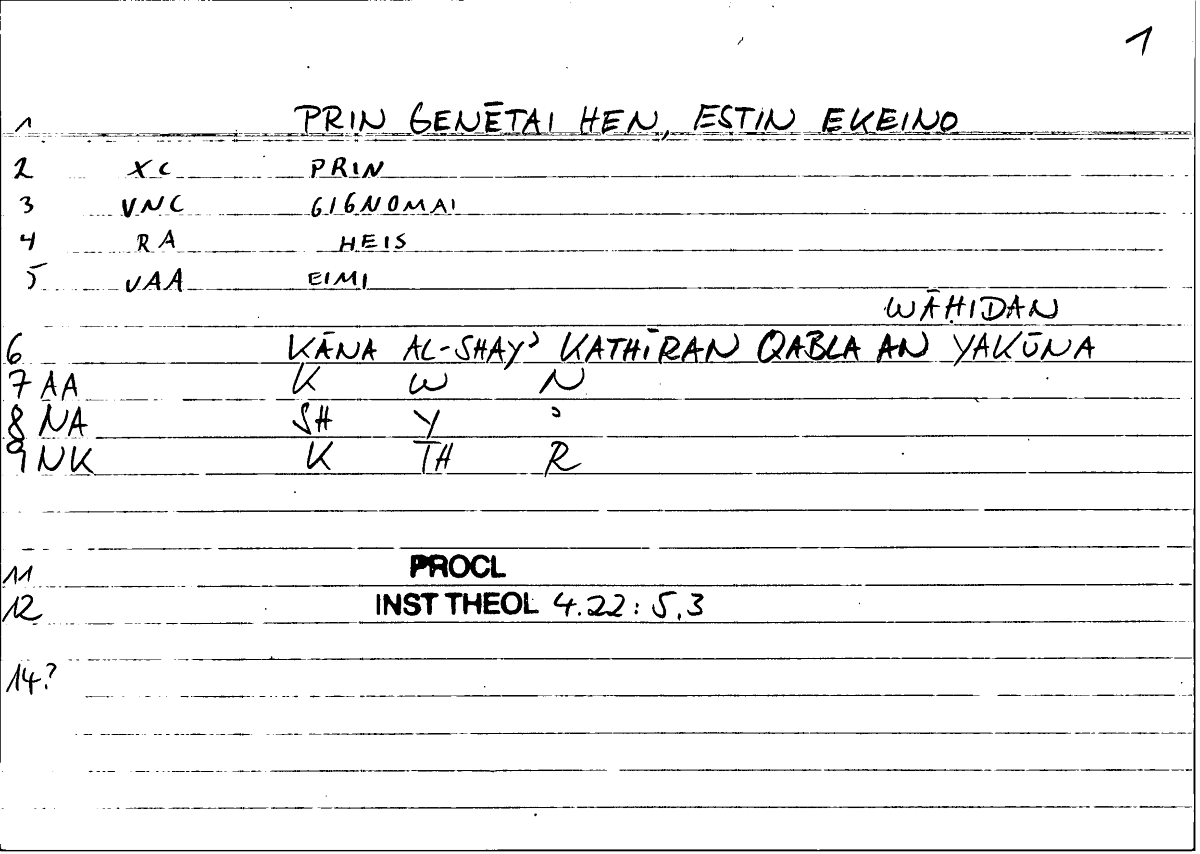 1
1 PRIN GENĒTAI HEN, ESTIN EKEINO
2 XC PRIN
3 VNC GIGNOMAI
4 RA HEIS
5 VAA EIMI
WĀḤIDAN
6 KĀNA AL-SHAYʾ KATHĪRAN QABLA AN YAKŪNA
7 AA K W N
8 NA SH Y ʾ
9 NK K TH R
11 PROCL
12 INST THEOL 4.22: 5,3
14?